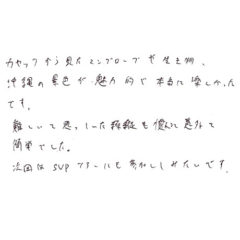 カヤックから見たマングローブや生き物、
沖縄の景色が魅力的で本当に楽しかった
です。
難しいと思っていた操縦も慣れて意外と
簡単でした。
次回はSUPツアーにも参加してみたいです。